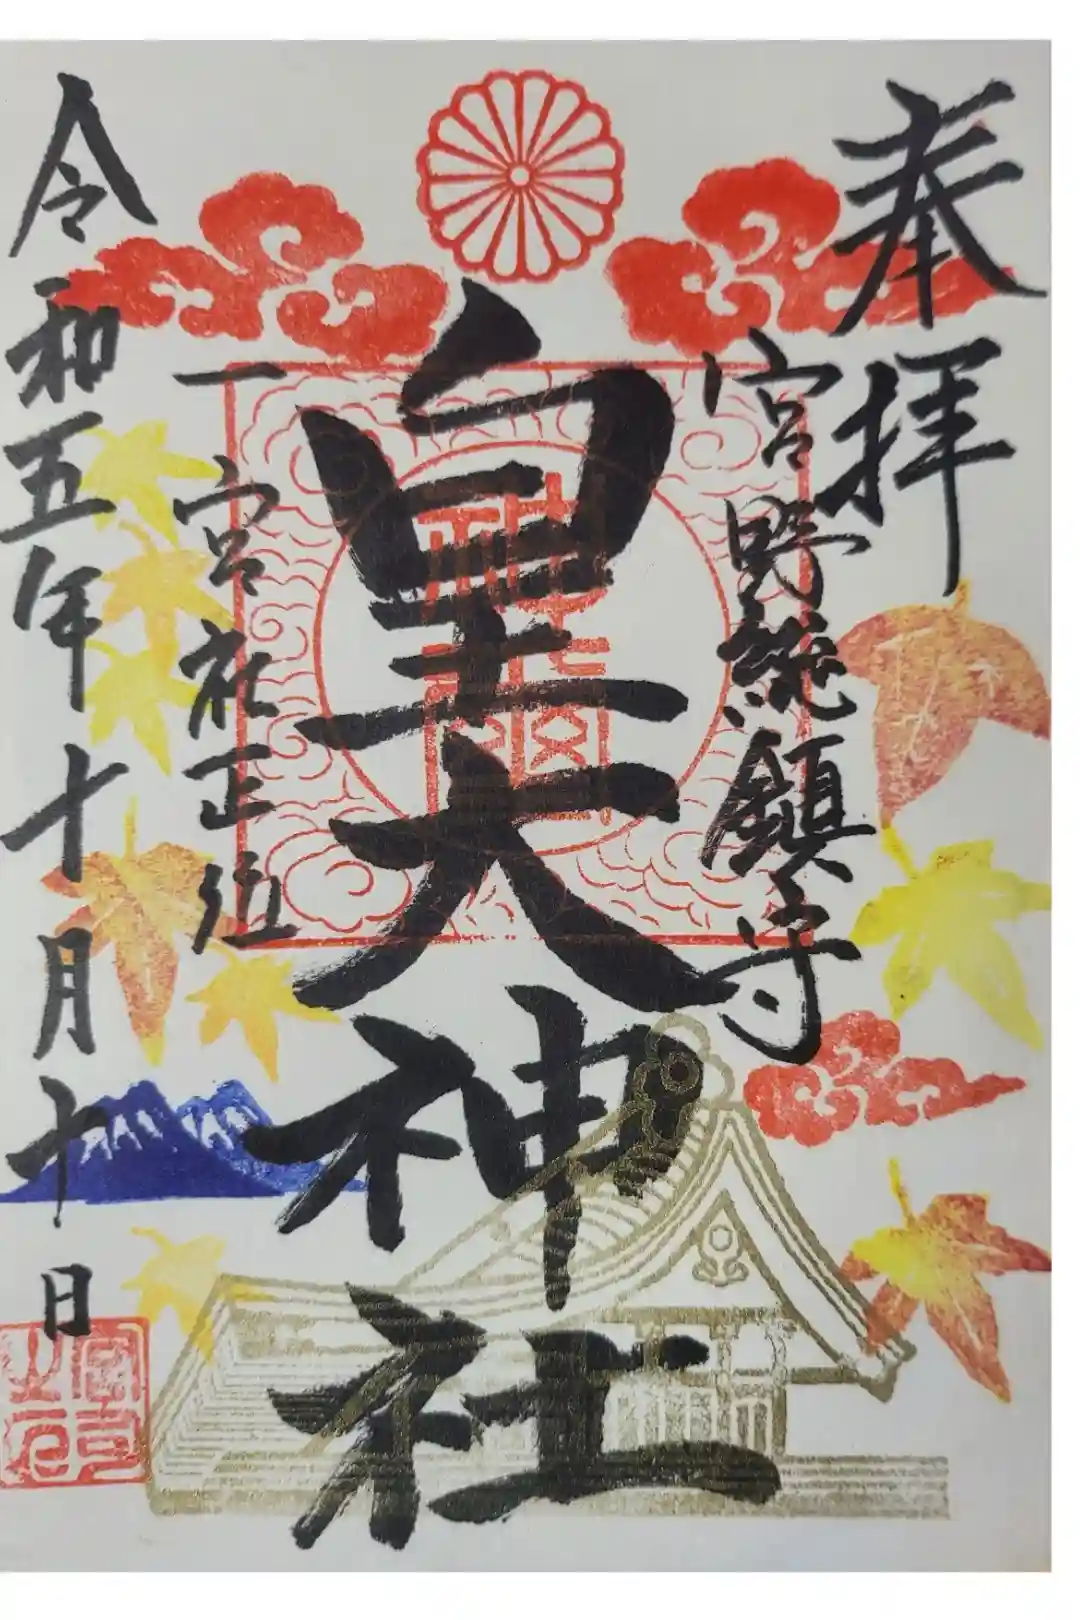 奉拝
宮野総鎮守
皇大神社
一宮社正位
令和五年十月十日
宮司之印